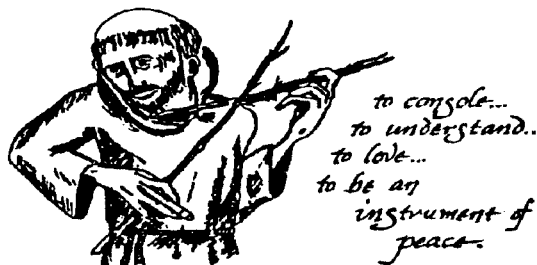 to console...
to understand..
to love...
to be an
instrument of
peace.